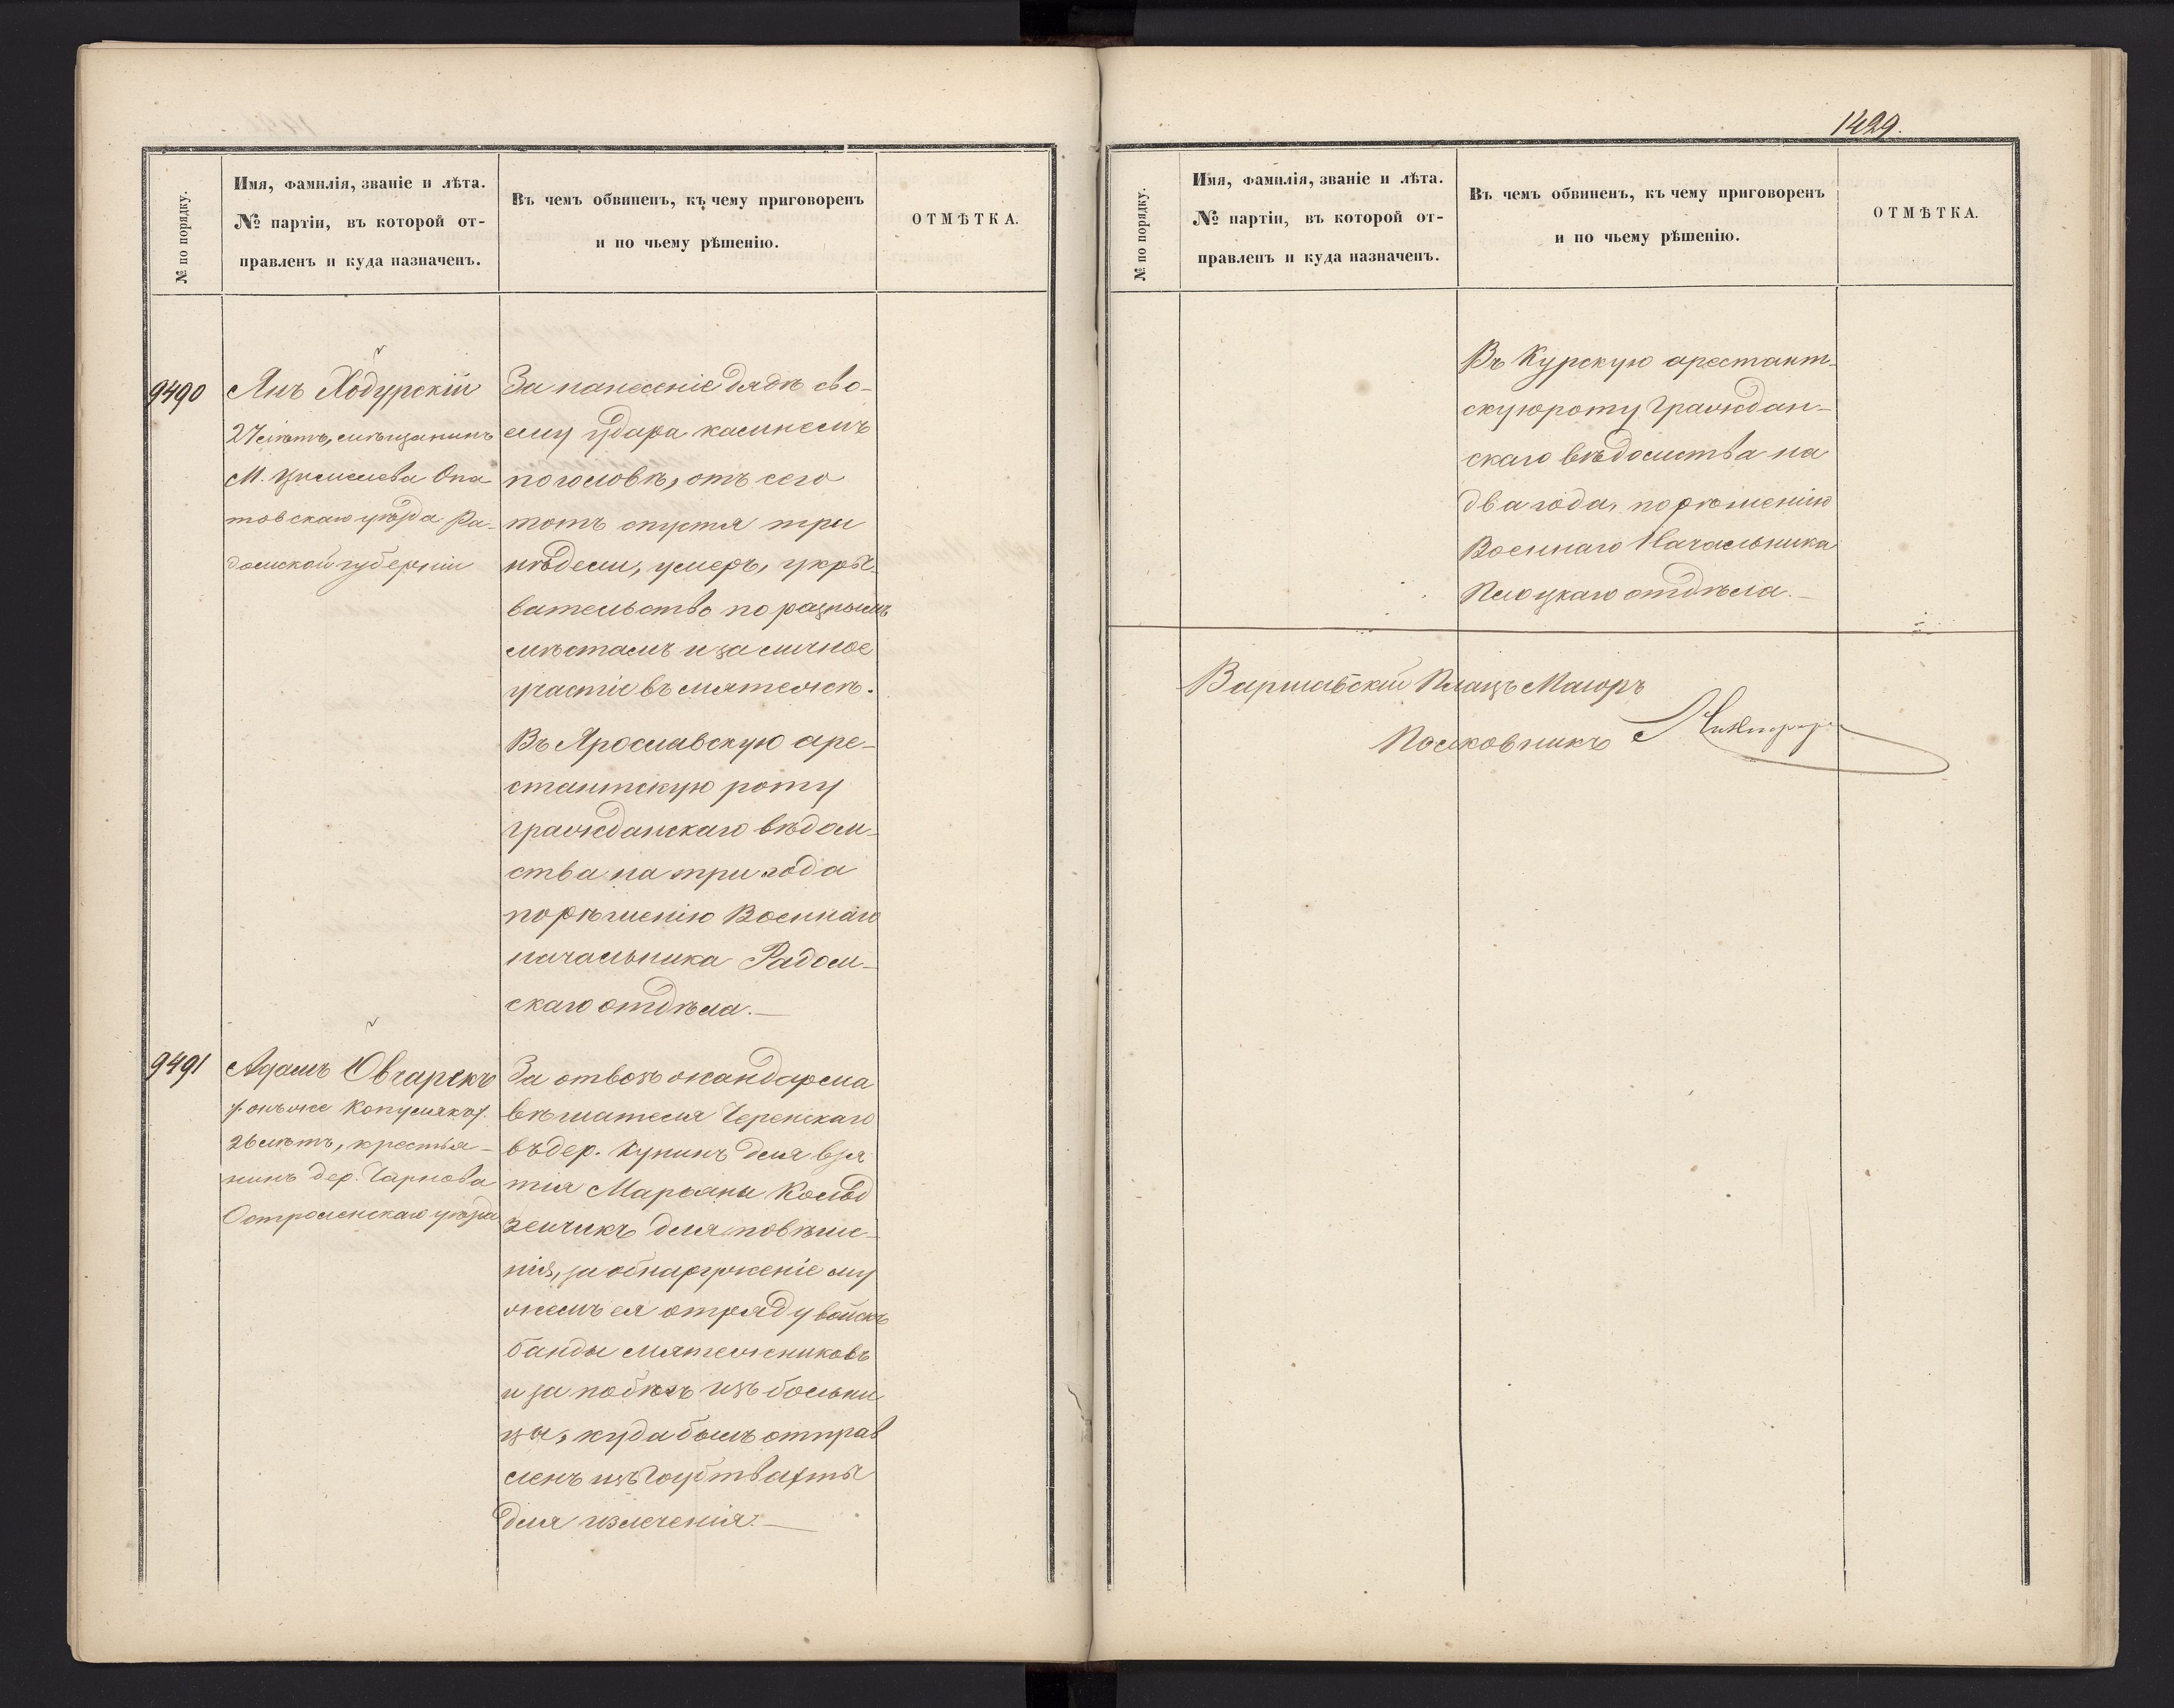 № по порядку.
Имя, фамилія, званіе и лѣта.
№ партіи, въ которой от-
правленъ и куда назначенъ.
Въ чемъ обвиненъ, къ чему приговоренъ
и по чьему рѣшенію.
ОТМѢТКА.
9490
Янъ Ходурскій
27 лѣтъ, мѣщанинъ
М. Цмелева Опа
товскаго уѣзда Ра-
домской губерніи
За нанесеніе дядѣ сво-
ему удара камнемъ
по головѣ, отъ сего
тотъ спустя три
нѣдели, умеръ, укры-
вательство по разнымъ
мѣстамъ и за личное
участіе въ мятежѣ.
Въ Ярославскую аре-
стантскую роту
гражданскаго вѣдом-
ства на три года
по рѣшенію Военнаго
начальника Радом-
скаго отдѣла.—
9491
Адамъ Овчарекъ
онъ же Копулякъ
26 лѣтъ, крестья-
нинъ дер. Чарнова
Остроленскаго уѣзда
За отвозъ жандарма
вѣшателя Черенскаго
въ дер. Купинъ для взя
тія Марьяны Колод
зейчикъ для повѣше-
нія, за обнаруженіе му
жемъ ея отряду войскъ
банды мятежниковъ
и за побѣгъ изъ больни
цы, куда былъ отправ
ленъ изъ Гоубтвахты
для излеченія.—
1429.
№ по порядку.
Имя, фамилія, званіе и лѣта.
№ партіи, въ которой от-
правленъ и куда назначенъ.
Въ чемъ обвиненъ, къ чему приговоренъ
и по чьему рѣшенію.
ОТМѢТКА.
Въ Курскую арестант-
скую роту Граждан-
скаго вѣдомства на
два года, по рѣшенію
Военнаго Начальника
Плоцкаго отдѣла.—
Варшавскій Плацъ Маіоръ
Полковникъ